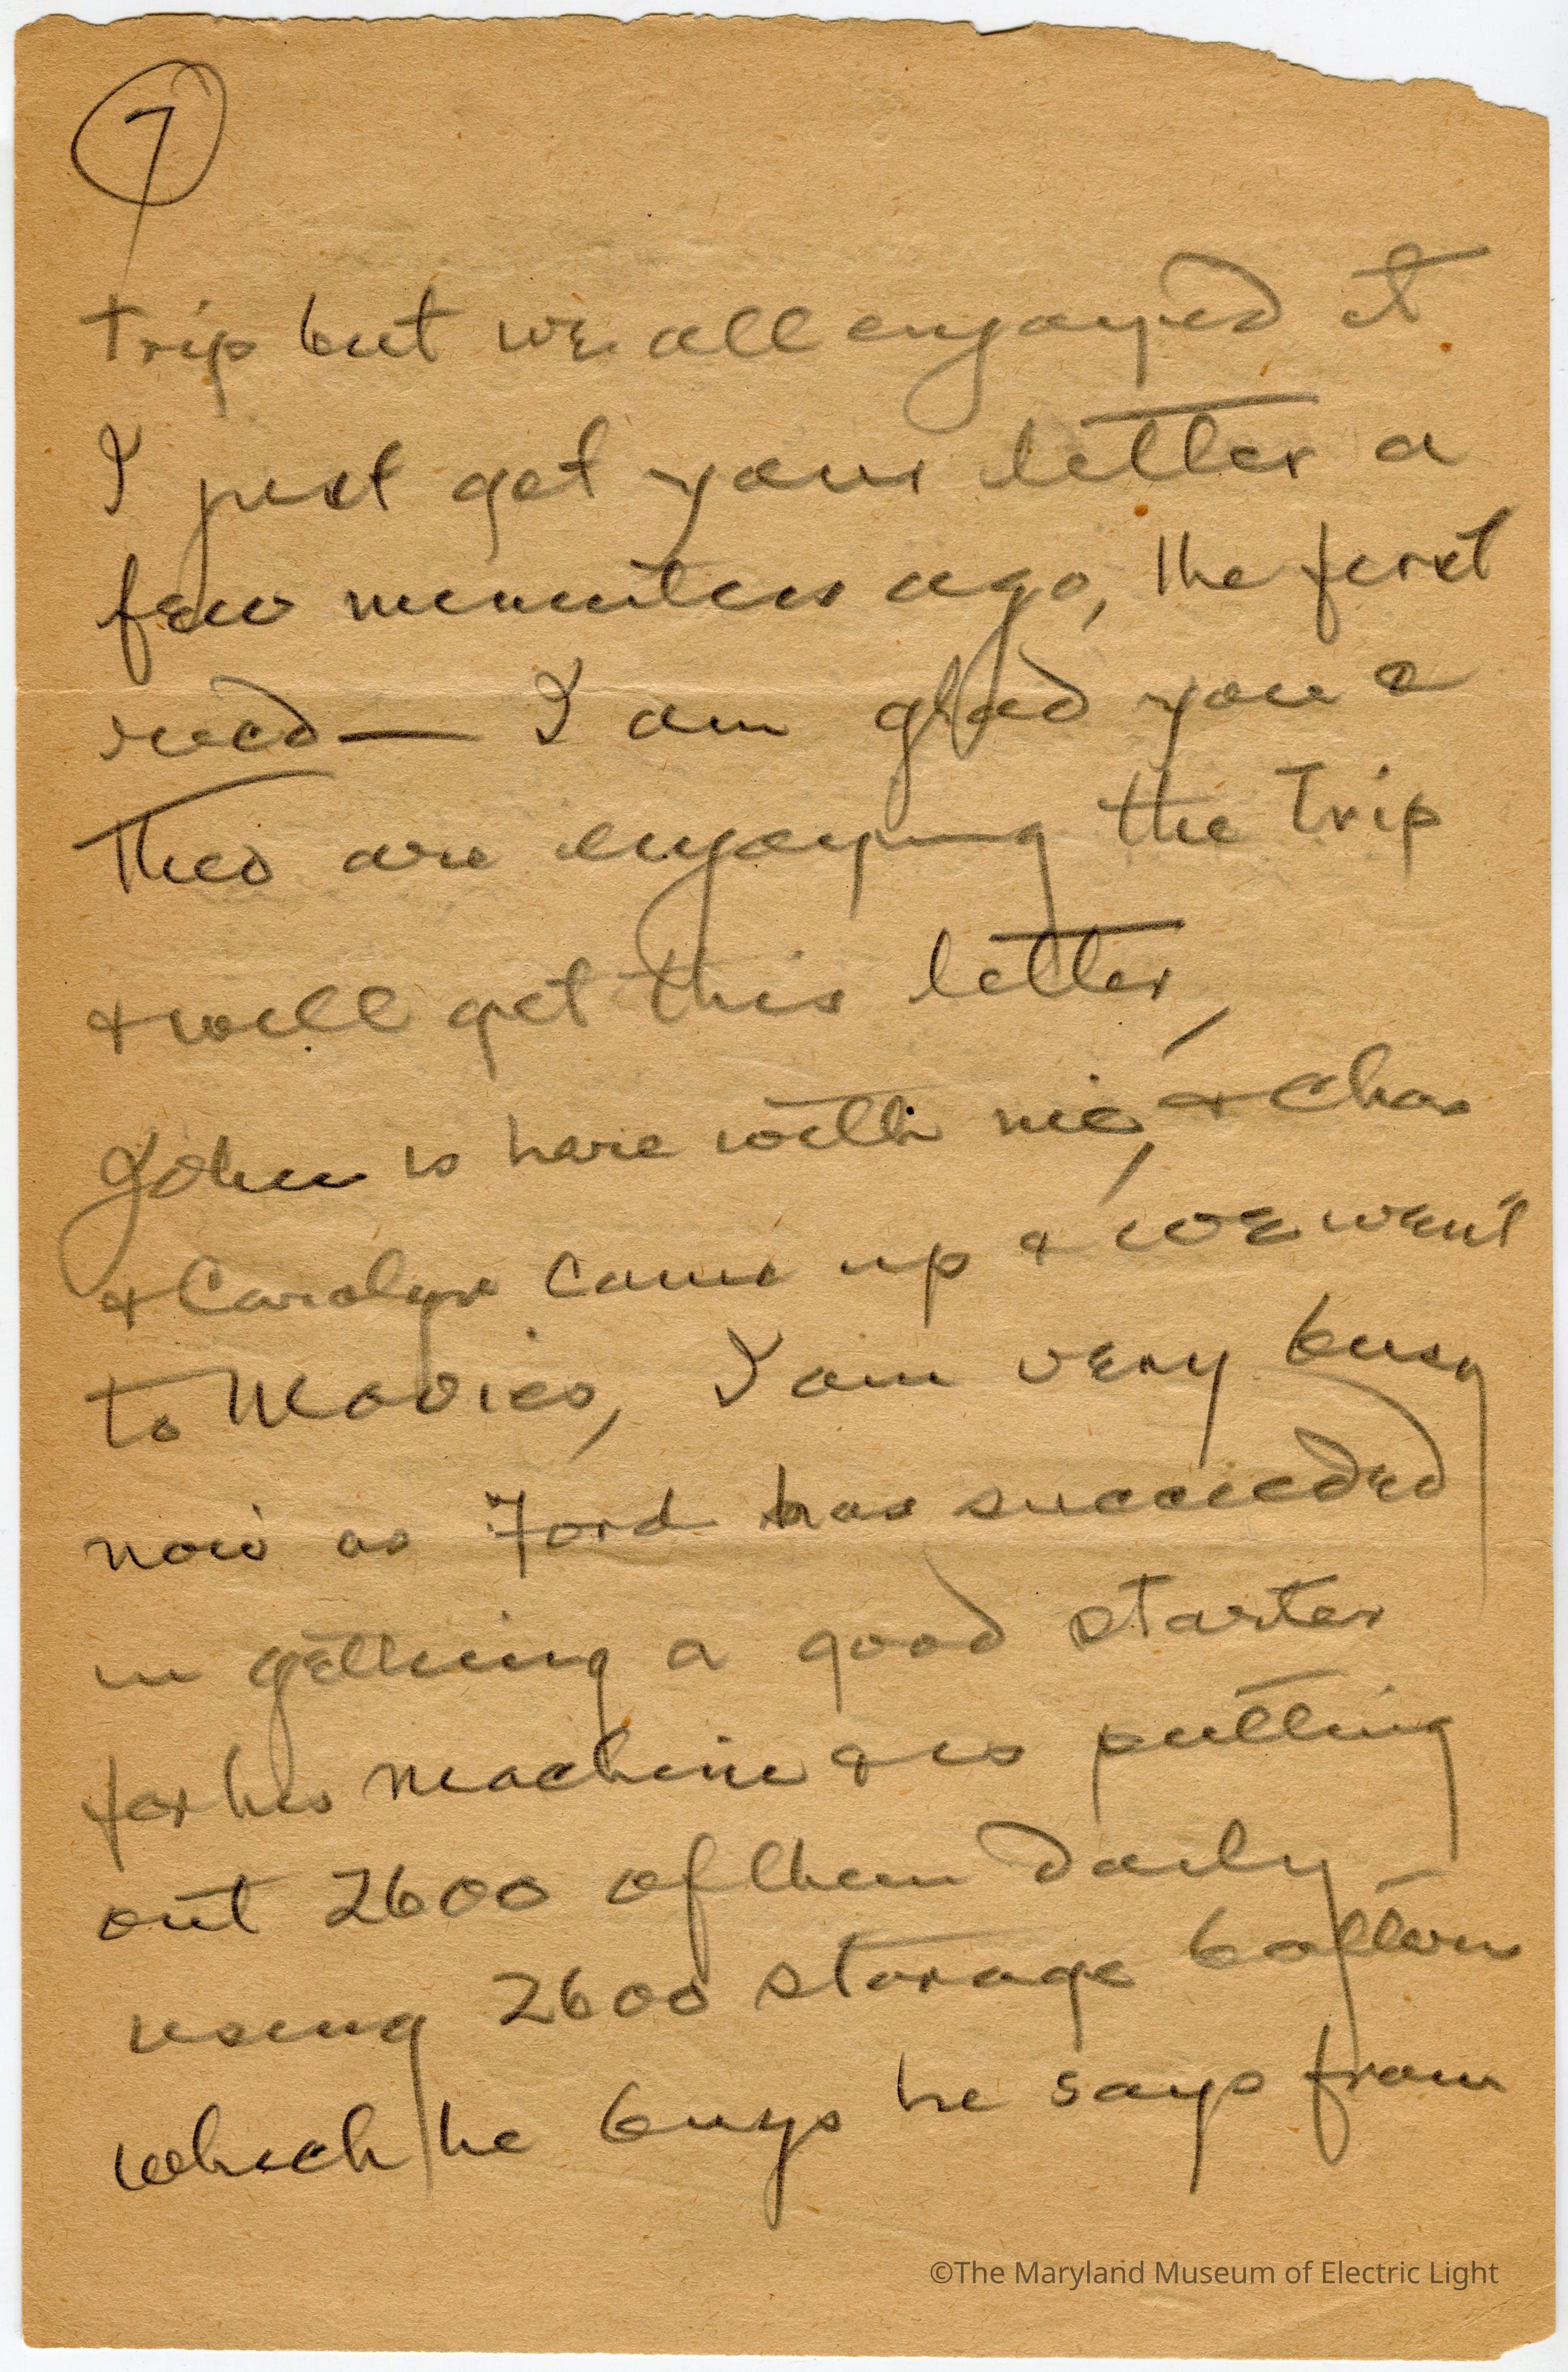 7
trip but we all enjoyed it
I just got your letter a
few minutes ago, the first
recd — I am glad you &
Theo are enjoying the trip
& will get this letter,
John is here with me, & Chas
& Carolyn came up & we went
to Movies, I am very busy
now as Ford has succeeded
in getting a good starter
for his machine & is putting
out 2600 of them daily
using 2600 storage
which he buys he says from
©The Maryland Museum of Electric Light